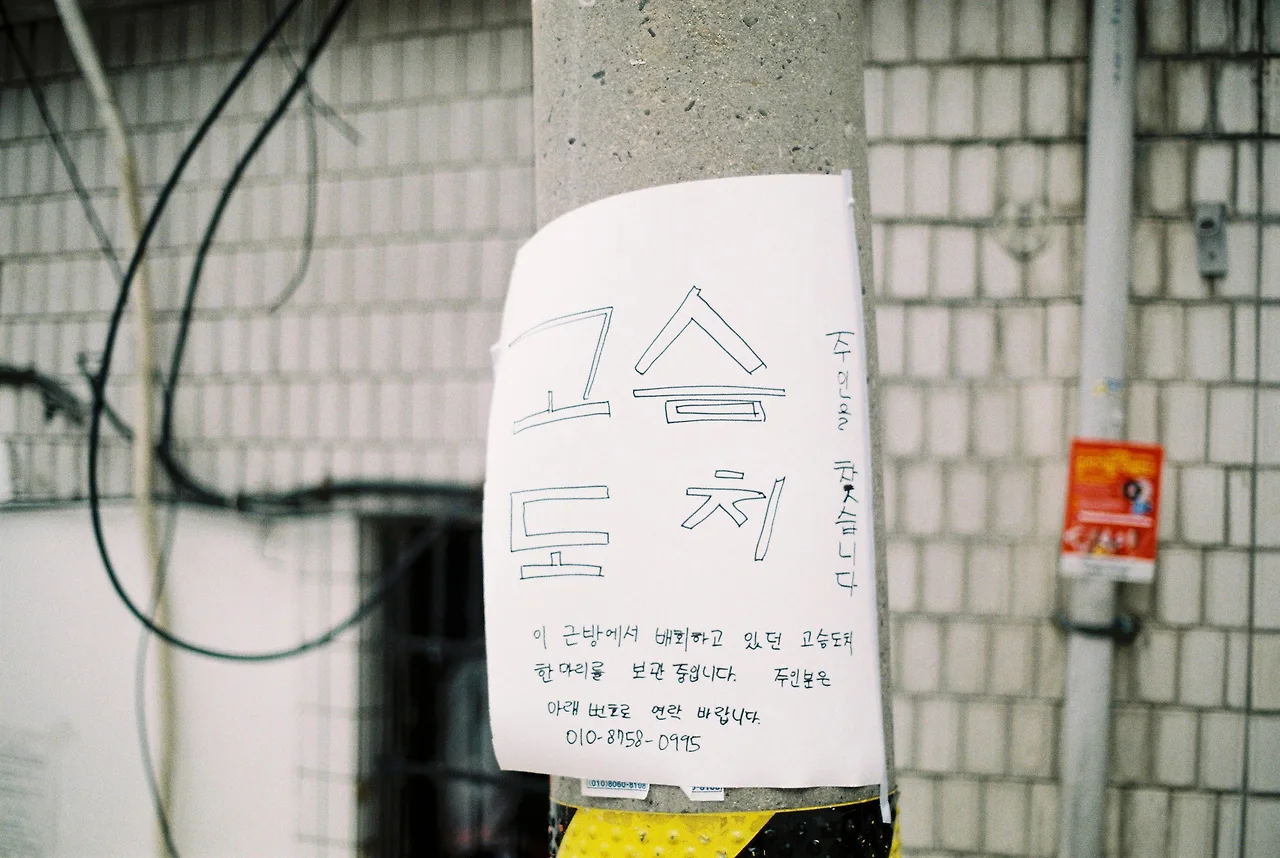 고슴
도치
주인을 찾습니다
이 근방에서 배회하고 있던 고슴도치
한마리를 보관 중입니다. 주인분은
아래 번호로 연락 바랍니다.
010-8758-0995
(010)8060-8198